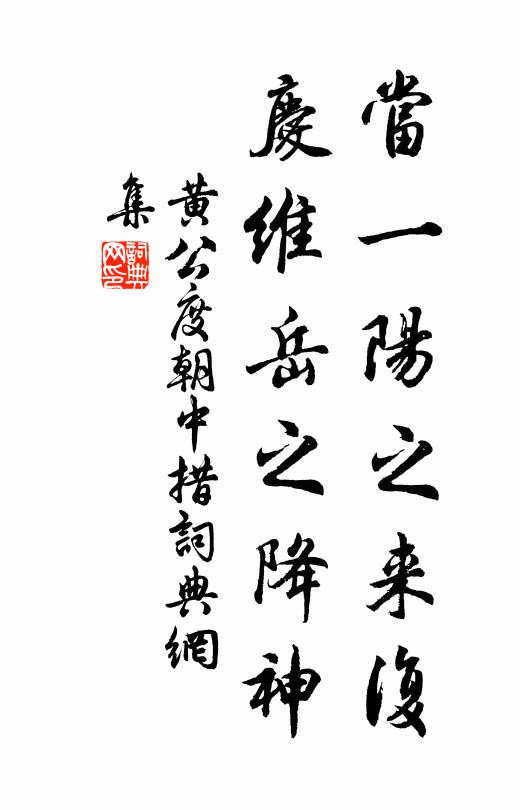 當一陽之来復
慶維岳之降神
黄公度朝中措詞典網
集
詞典
网印